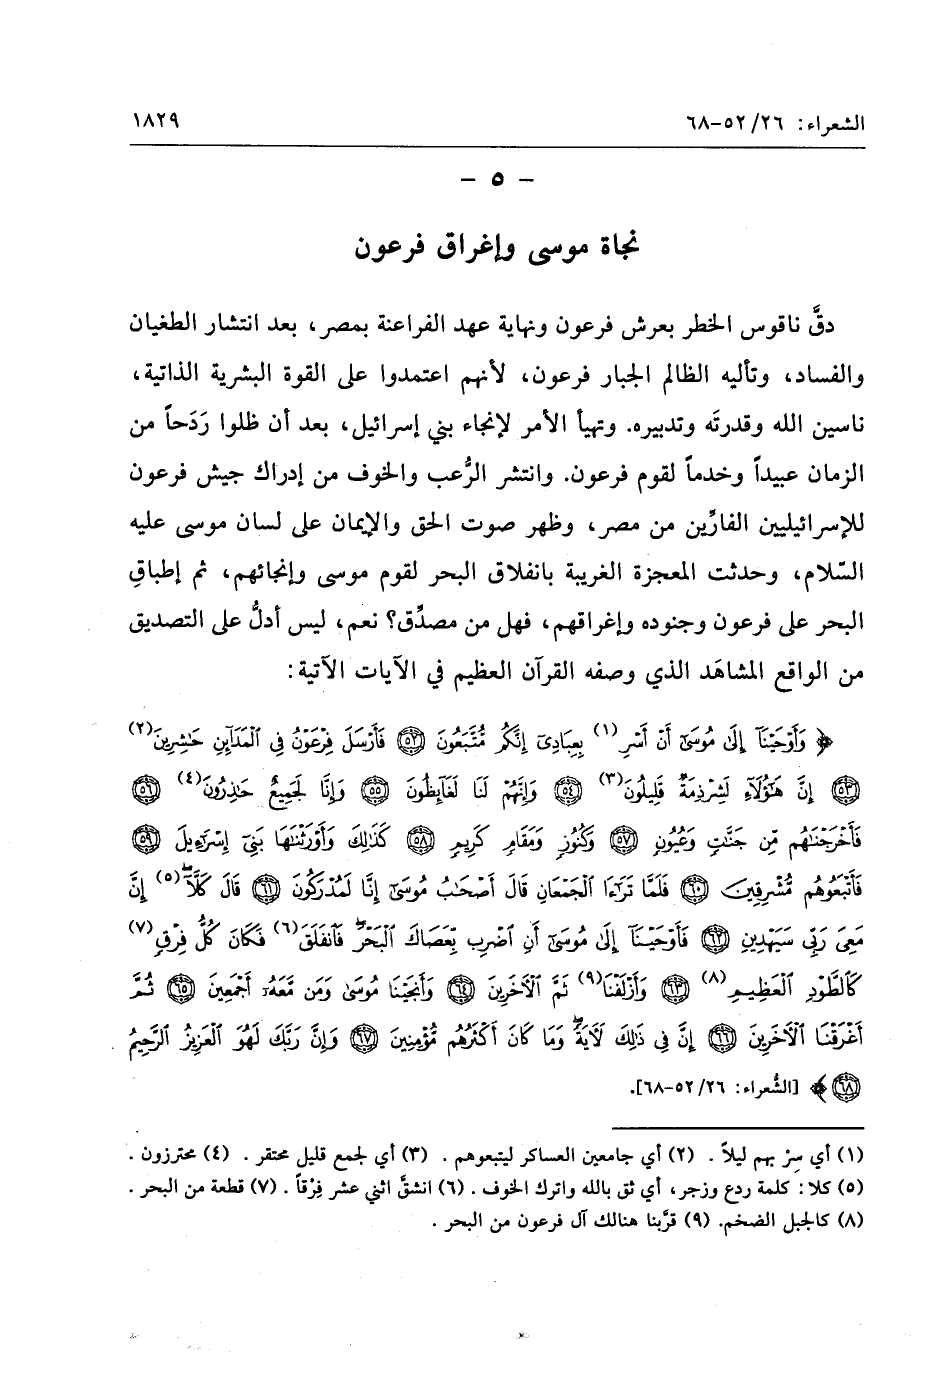 الشعراء: ٥٢/٢٦-٦٨ ١٨٢٩
- ٥ -
نجاة موسى وإغراق فرعون
دقَّ ناقوس الخطر بعرش فرعون ونهاية عهد الفراعنة بمصر، بعد انتشار الطغيان
والفساد، وتأليه الظالم الجبار فرعون، لأنهم اعتمدوا على القوة البشرية الذاتية،
ناسين الله وقدرتَه وتدبيره. وتهيأ الأمر لإنجاء بني إسرائيل، بعد أن ظلوا رَدَحاً من
الزمان عبيداً وخدماً لقوم فرعون. وانتشر الرُّعب والخوف من إدراك جيش فرعون
للإسرائيليين الفارِّين من مصر، وظهر صوت الحق والإيمان على لسان موسى عليه
السّلام، وحدثت المعجزة الغريبة بانفلاق البحر لقوم موسى وإنجائهم، ثم إطباقِ
البحر على فرعون وجنوده وإغراقهم، فهل من مصدِّق؟ نعم، ليس أدلُّ على التصديق
من الواقع المشاهَد الذي وصفه القرآن العظيم في الآيات الآتية:
﴿ وَأَوْحَيْنَآ إِلَىٰ مُوسَىٰٓ أَنْ أَسْرِ(١) بِعِبَادِىٓ إِنَّكُم مُّتَّبَعُونَ ٥٢ فَأَرْسَلَ فِرْعَوْنُ فِى ٱلْمَدَآئِنِ حَـٰشِرِينَ(٢)
٥٣ إِنَّ هَـٰٓؤُلَآءِ لَشِرْذِمَةٌ قَلِيلُونَ(٣) ٥٤ وَإِنَّهُمْ لَنَا لَغَآئِظُونَ ٥٥ وَإِنَّا لَجَمِيعٌ حَـٰذِرُونَ(٤) ٥٦
فَأَخْرَجْنَـٰهُم مِّن جَنَّـٰتٍ وَعُيُونٍ ٥٧ وَكُنُوزٍ وَمَقَامٍ كَرِيمٍ ٥٨ كَذَٰلِكَ وَأَوْرَثْنَـٰهَا بَنِىٓ إِسْرَٰٓءِيلَ ٥٩
فَأَتْبَعُوهُم مُّشْرِقِينَ ٦٠ فَلَمَّا تَرَٰٓءَا ٱلْجَمْعَانِ قَالَ أَصْحَـٰبُ مُوسَىٰٓ إِنَّا لَمُدْرَكُونَ ٦١ قَالَ كَلَّآ(٥) إِنَّ
مَعِىَ رَبِّى سَيَهْدِينِ ٦٢ فَأَوْحَيْنَآ إِلَىٰ مُوسَىٰٓ أَنِ ٱضْرِب بِّعَصَاكَ ٱلْبَحْرَ فَٱنفَلَقَ(٦) فَكَانَ كُلُّ فِرْقٍ(٧)
كَٱلطَّوْدِ ٱلْعَظِيمِ(٨) ٦٣ وَأَزْلَفْنَا(٩) ثَمَّ ٱلْـَٔاخَرِينَ ٦٤ وَأَنجَيْنَا مُوسَىٰ وَمَن مَّعَهُۥٓ أَجْمَعِينَ ٦٥ ثُمَّ
أَغْرَقْنَا ٱلْـَٔاخَرِينَ ٦٦ إِنَّ فِى ذَٰلِكَ لَـَٔايَةً وَمَا كَانَ أَكْثَرُهُم مُّؤْمِنِينَ ٦٧ وَإِنَّ رَبَّكَ لَهُوَ ٱلْعَزِيزُ ٱلرَّحِيمُ
٦٨ ﴾ [الشُّعراء: ٥٢/٢٦-٦٨].
(١) أي سِرْ بهم ليلاً. (٢) أي جامعين العساكر ليتبعوهم. (٣) أي لجمع قليل محتقر. (٤) محترزون.
(٥) كلا: كلمة ردع وزجر، أي ثق بالله واترك الخوف. (٦) انشقَّ اثني عشر فِرْقاً. (٧) قطعة من البحر.
(٨) كالجبل الضخم. (٩) قرَّبنا هنالك آل فرعون من البحر.